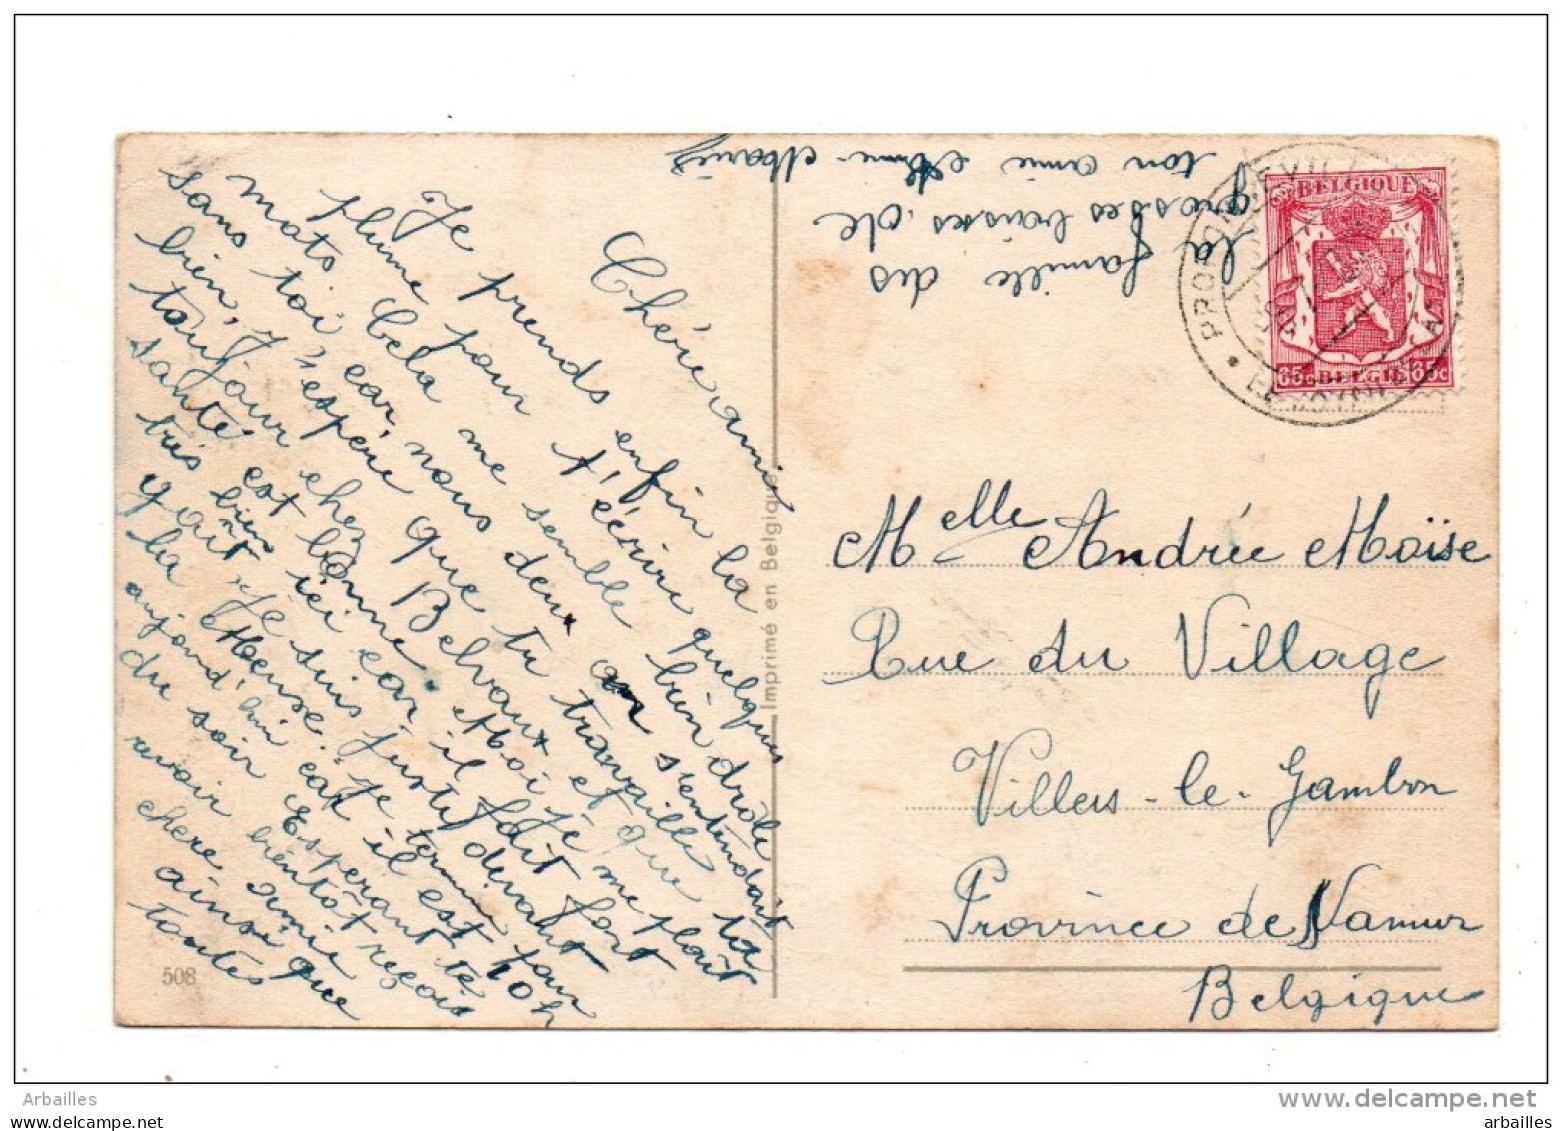 Chère amie
Je prends enfin la
plume pour t'écrire quelques
mots Cela me semble bien drôle
sans toi car nous deux on s'entendait
bien, J'espère que tu travaille
toujour chez Belvaux et que ta
santé est bonne Moi je me plait
très bien ici car il fait fort
y ait Je suis juste devant
la Meuse. Je termine pour
aujourd'hui car il est 10 h
du soir Esperant te
revoir bientôt reçois
chere amie
ainsi que
toutes
la famille des
grosses baises de
ton amie Anne-Marie
Imprimé en Belgique
508
BELGIQUE
65c BELGIE 65c
PHILIPPEVILLE
Melle Andrée Moïse
Rue du Village
Villers-le-Gambon
Province de Namur
Belgique
Arbailles
delcampe.net
arbailles
arbailles